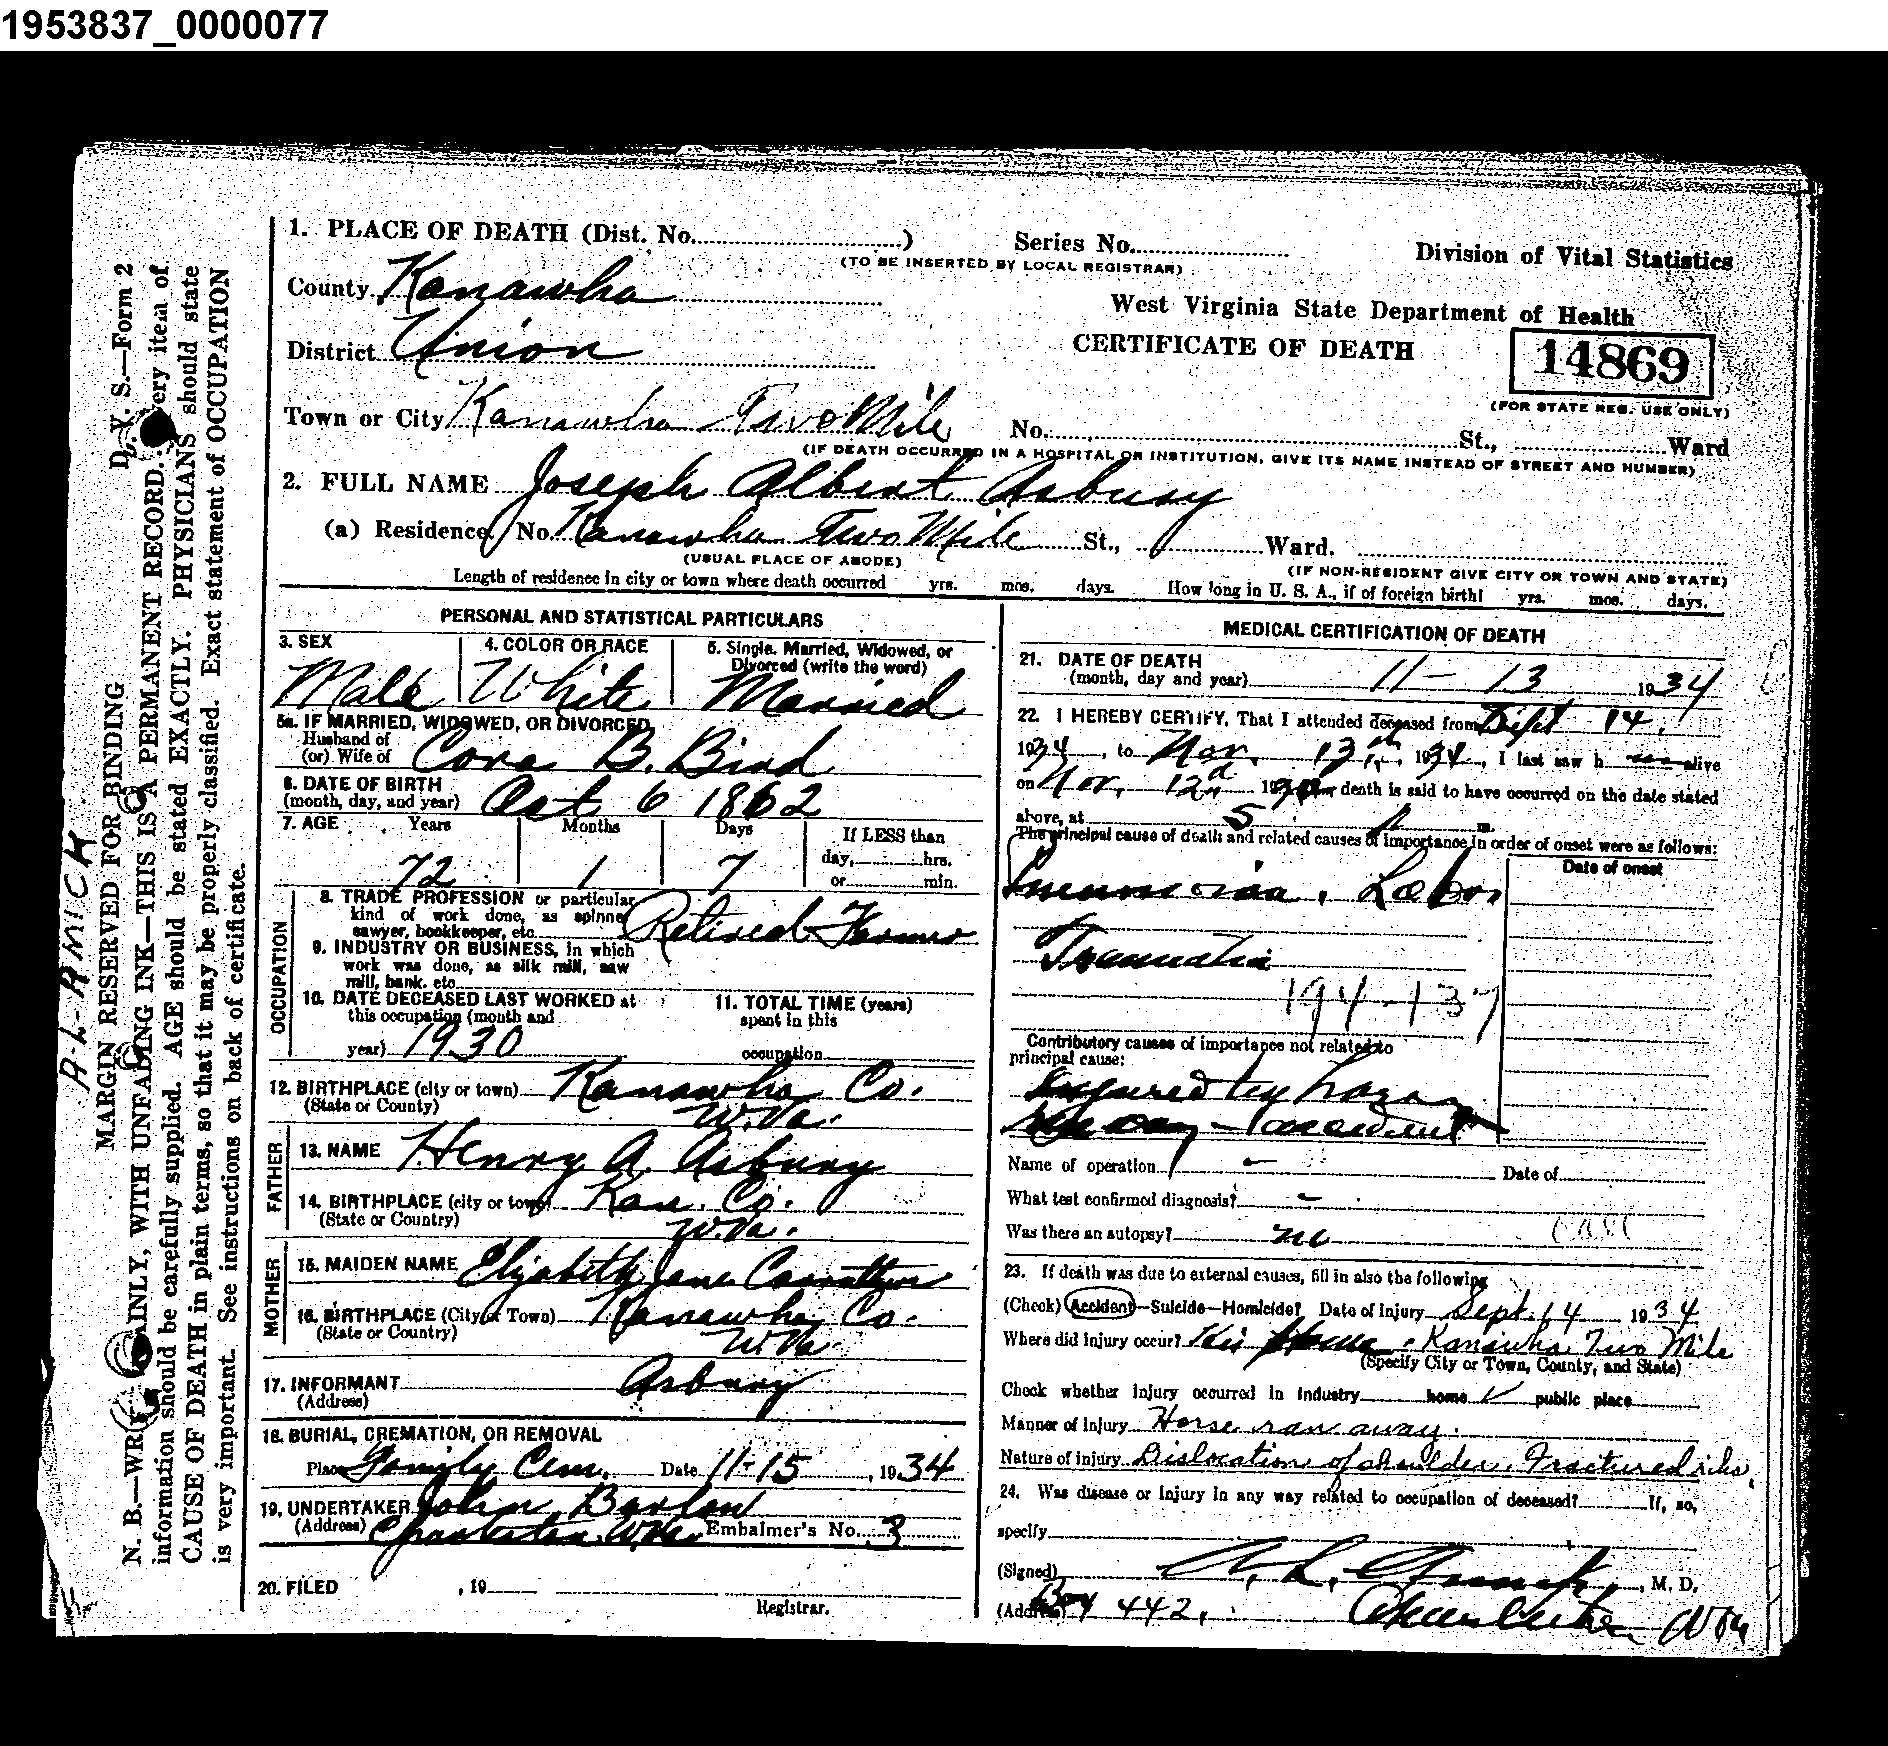 1953837_0000077
1. PLACE OF DEATH (Dist. No. )
Series No.
(TO BE INSERTED BY LOCAL REGISTRAR)
Division of Vital Statistics
County Kanawha
West Virginia State Department of Health
District Union
CERTIFICATE OF DEATH
14869
(FOR STATE REG. USE ONLY)
Town or City Kanawha Two Mile No. St., Ward
(IF DEATH OCCURRED IN A HOSPITAL OR INSTITUTION, GIVE ITS NAME INSTEAD OF STREET AND NUMBER)
2. FULL NAME Joseph Albert Asbury
(a) Residence, No. Kanawha Two Mile St., Ward.
(USUAL PLACE OF ABODE)
(IF NON-RESIDENT GIVE CITY OR TOWN AND STATE)
Length of residence in city or town where death occurred yrs. mos. days. How long in U. S. A., if of foreign birth! yrs. mos. days.
PERSONAL AND STATISTICAL PARTICULARS
3. SEX
Male
4. COLOR OR RACE
White
5. Single, Married, Widowed, or
Divorced (write the word)
Married
5a. IF MARRIED, WIDOWED, OR DIVORCED
Husband of
(or) Wife of Cora B. Bird
6. DATE OF BIRTH
(month, day, and year) Oct 6 1862
7. AGE Years Months Days If LESS than
day, hrs.
or min.
72 1 7
OCCUPATION
8. TRADE PROFESSION or particular
kind of work done, as spinner
sawyer, bookkeeper, etc. Retired Farmer
9. INDUSTRY OR BUSINESS, in which
work was done, as silk mill, saw
mill, bank, etc.
10. DATE DECEASED LAST WORKED at
this occupation (month and
year) 1930
11. TOTAL TIME (years)
spent in this
occupation
12. BIRTHPLACE (city or town) Kanawha Co.
(State or County) W.Va.
FATHER
13. NAME Henry A. Asbury
14. BIRTHPLACE (city or town) Kan. Co.
(State or Country) W.Va.
MOTHER
15. MAIDEN NAME Elizabeth Jane
16. BIRTHPLACE (City or Town) Kanawha Co.
(State or Country) W.Va.
17. INFORMANT Asbury
(Address)
18. BURIAL, CREMATION, OR REMOVAL
Place Family Cem. Date 11-15, 1934
19. UNDERTAKER John Barlow
(Address) Charleston W.Va. Embalmer's No. 3
20. FILED , 19
Registrar.
MEDICAL CERTIFICATION OF DEATH
21. DATE OF DEATH
(month, day and year) 11-13 1934
22. I HEREBY CERTIFY, That I attended deceased from Sept 14,
1934, to Nov. 13, 1934, I last saw h alive
on Nov. 12, 19 death is said to have occurred on the date stated
above, at 5 m.
The principal cause of death and related causes of importance in order of onset were as follows:
Date of onset
Lobar
Traumatic
194-137
Contributory causes of importance not related to
principal cause:
Injured by horse
accident
Name of operation - Date of
What test confirmed diagnosis? -
Was there an autopsy? no
23. If death was due to external causes, fill in also the following
(Check) Accident—Suicide—Homicide? Date of Injury Sept. 14 1934
Where did injury occur? His Home. Kanawha Two Mile
(Specify City or Town, County, and State)
Check whether injury occurred in industry home ✓ public place
Manner of injury Horse ran away.
Nature of injury Dislocation of shoulder. Fractured ribs.
24. Was disease or injury in any way related to occupation of deceased? If, so,
specify
(Signed) A. L. Amick, M. D.
(Address) Box 442, Charleston W Va
A-L-AMICK
D. V. S.—Form 2
MARGIN RESERVED FOR BINDING
N. B.—WRITE PLAINLY, WITH UNFADING INK—THIS IS A PERMANENT RECORD. Every item of
information should be carefully supplied. AGE should be stated EXACTLY. PHYSICIANS should state
CAUSE OF DEATH in plain terms, so that it may be properly classified. Exact statement of OCCUPATION
is very important. See instructions on back of certificate.